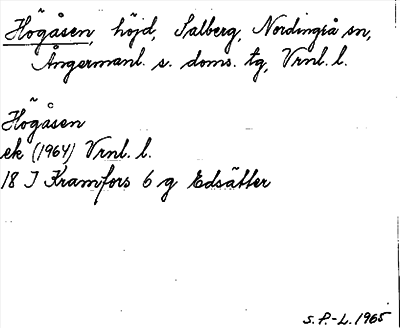 Högåsen, höjd, Salberg, Nordingrå sn,
Ångermanl. s. doms. tg, Vrnl. l.
Högåsen
ek (1964) Vrnl. l.
18 J Kramfors 6 g Edsätter
S. P.-L. 1965